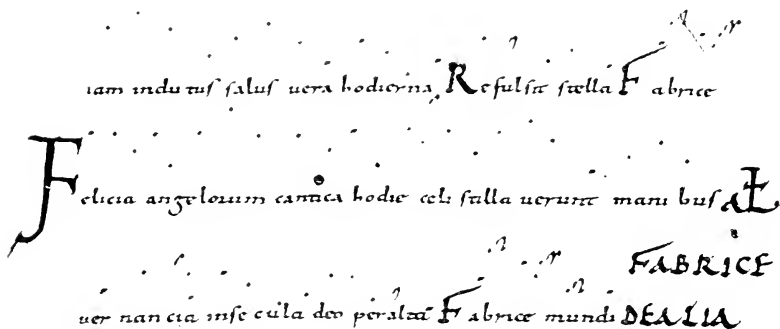 iam indutus salus uera hodierna Refulsit stella Fabrice
Felicia angelorum cantica hodie celi stilla uerunt manibus
FABRICE
uer nancia inse cula deo per alta Fabrice mundi DE ALIA